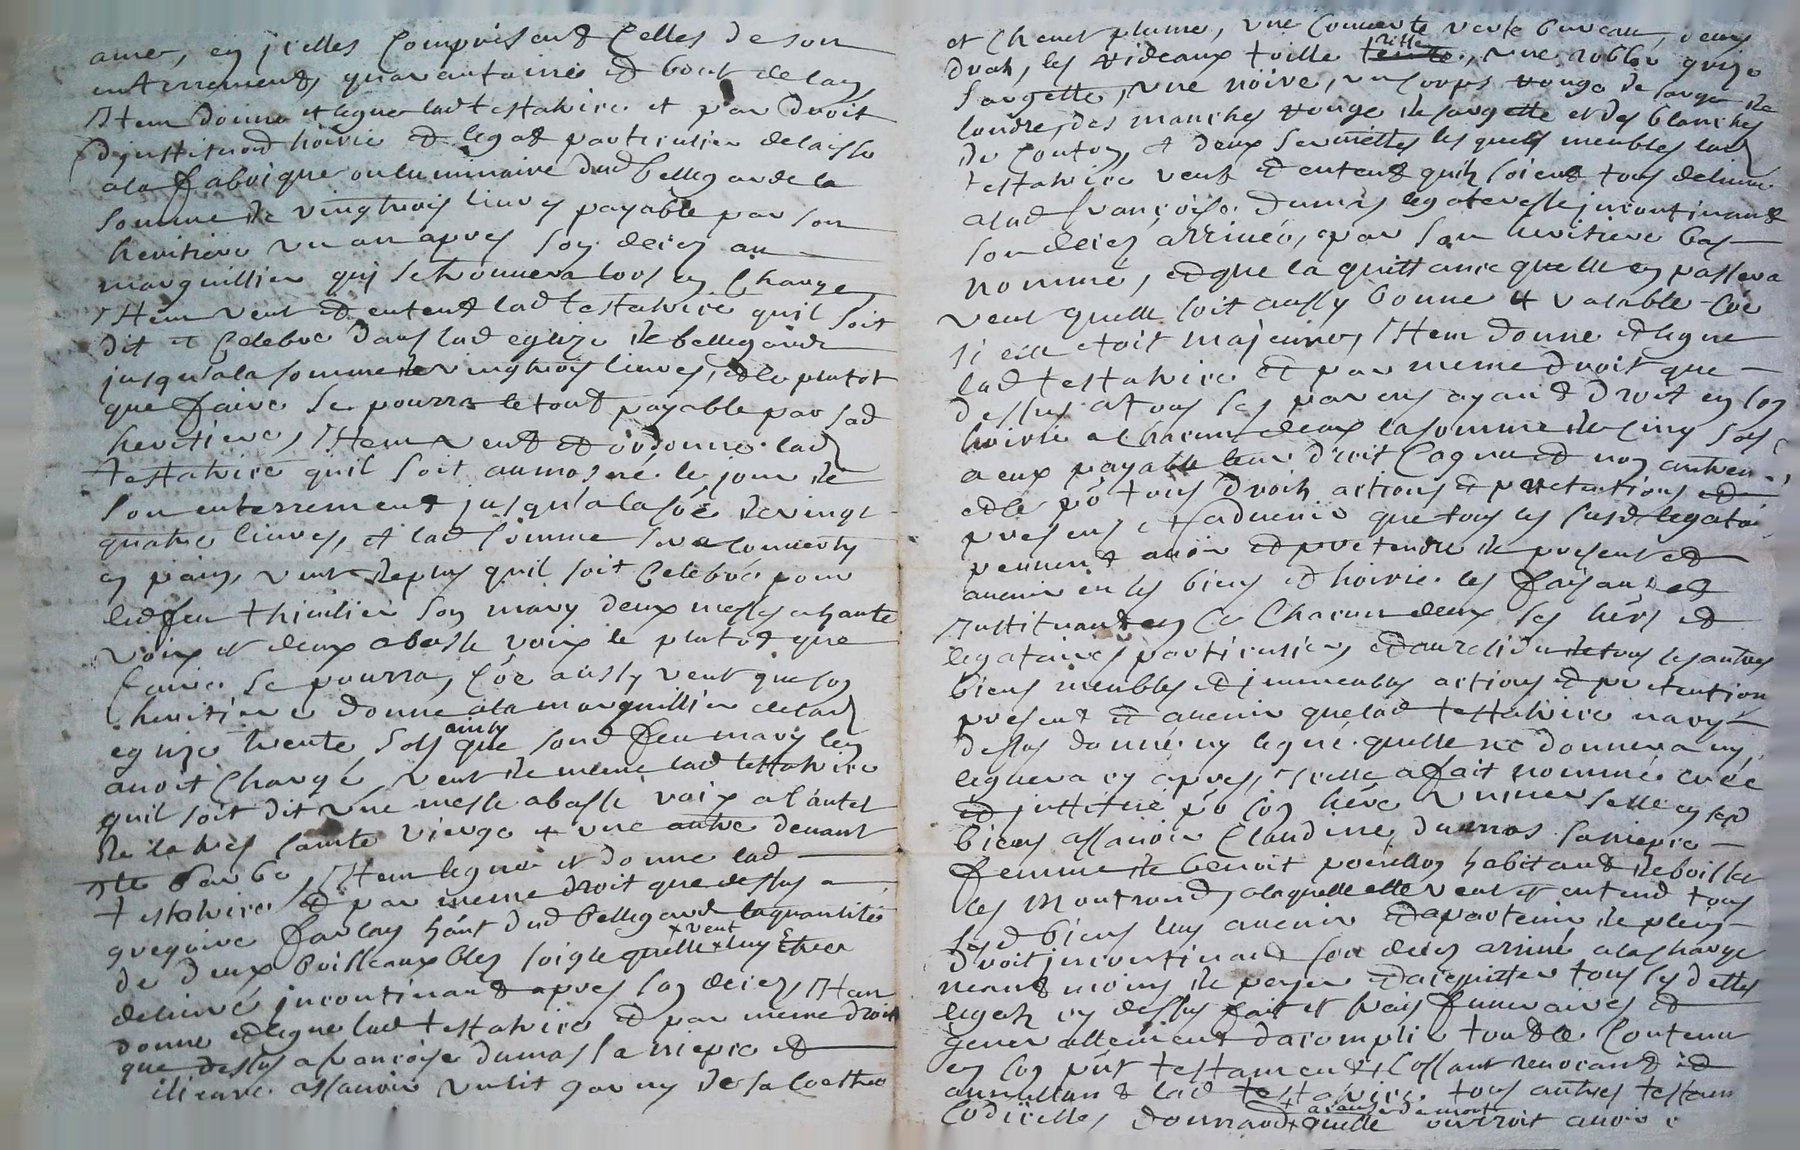 ame, en jcelles Comprisent Celles de son
enterrement, quarantaine et bout de lan,
Jtem donne et legue lad testatrice et par droit
dinstituon hoirie et legat particulier delaisse
a la fabrique ou luminaire dud bellegarde la
somme de vingtrois livres payable par son
heritiere un an apres son deces au
marguillier quj se trouvera lors en Charge,
Jtem veut et entend lad testatrice quil soit
dit et Celebre dans lad eglize de bellegarde
jusqua la somme de vingtrois livres, et le plutot
que faire se pourra le tout payable par sad
heritiere, Jtem veut et ordonne lad
testatrice quil soit aumosné le jour de
son enterrement jusqu'a la soe de vingt
quatre livres, et lad somme sera convertis
en pain, veut de plus quil soit Celebré pour
led feu thimlier son mary deux messes a haute
voix et deux a basse voix le plutot que
faire se pourra, Coe aussy veut que son
heritiere donne a la marguillier de lad
eglize trente sols ainsy que sond feu mary len
avoit Chargé veut de meme lad testatrice
quil soit dit une messe a basse voix a l'autel
de la tres sainte vierge et une autre devant
ste barbe, Jtem legue et donne lad
testatrice et par meme droit que dessus a
gregoire farlay hant dud bellegarde la quantité
de deux boisseaux bled soigle quelle veut luy Etre
delivré jncontinant apres son deces, Jtem
donne et legue lad testatrice et par meme droit
que dessus a françoise dumas sa niepce et
assavoir un lit garny de sa Coettre
et Chevet plume, une Couverte verte bureau, deux
drah, les rideaux toille, une robbe grize
sargette, une noire, un corps rouge de sarge de
londre, des manches rouge de sargette et des blanches
de Couton, et deux serviettes les quels meubles lad
testatrice veut et entend quils soient tous delivré
a lad françoise dumas legateresse jncontinant
son deces arrivéé, par son heritiere bas
nommé, et que la quittance quelle en passera
veut quelle soit aussy bonne et valable Coe
si elle etoit majeure, Jtem donne et legue
lad testatrice et par meme droit que
dessus a tous ses parens ayant droit en son
hoirie a Chacun deux la somme de Cinq sols
a eux payable leur droit Cognu et non autrem
et ce po tous droits actions et pretentions et
presens et advenir que tous les susd legatai
peuvent avoir et pretendre de present et
avenir en les biens et hoirie les faisant et
Jnstituant en Ce Chacun deux ses hers et
legataires particuliers, et au residu de tous les autres
biens meubles et jmmeubles actions et pretention
present et avenir que lad testatrice nary
dessus donné ny legué quelle ne donnera ny
leguera cy apres, Jcelle a fait nommé creé
et jnstitué po son here universelle en sesd
biens assavoir Claudine dumas sa niepce
femme de benoit poeillon habitant de boisset
les montrond, a laquelle elle veut et entend tous
sesd biens luy avenir et apartenir de plein
droit jncontinant son deces arrivé a la charge
neant moins de payer et acquitter tous ses dettes
legats cy dessus fait et frais funeraires et
generallement dacomplir tout le Contenu
en son pnt testament, Cassant revocant et
annullant lad testatrice tous autres testam
Codicelles, donnaon avant de mort quelle ouvroit avoir